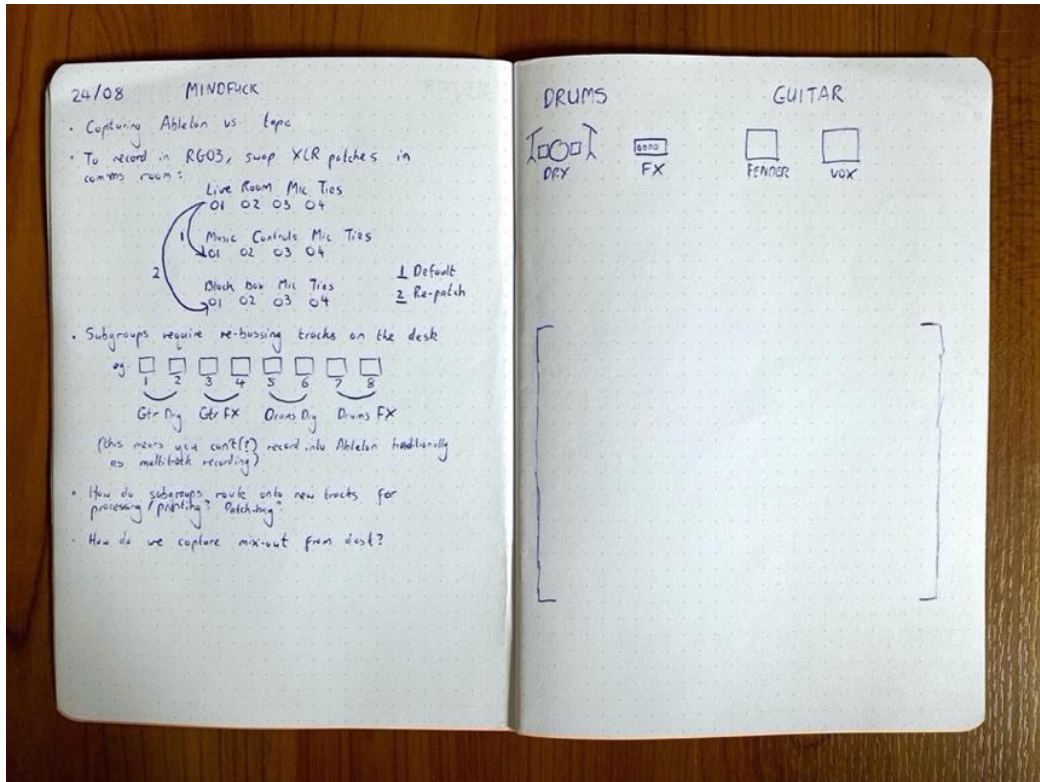 24/08 MINDFUCK
• Capturing Ableton vs. tape
• To record in RG03, swap XLR patches in
comms room:
Live Room Mic Ties
01 02 03 04
1
Music Controls Mic Ties
01 02 03 04
2
Black Box Mic Ties
01 02 03 04
1 Default
2 Re-patch
• Subgroups require re-bussing tracks on the desk
eg.
1 2 3 4 5 6 7 8
Gtr Dry Gtr FX Drums Dry Drums FX
(this means you can't(?) record into Ableton traditionally
as multitrack recording)
• How do subgroups route onto new tracks for
processing/printing? Patch-bay?
• How do we capture mix-out from desk?
DRUMS GUITAR
DRY FX FENDER VOX